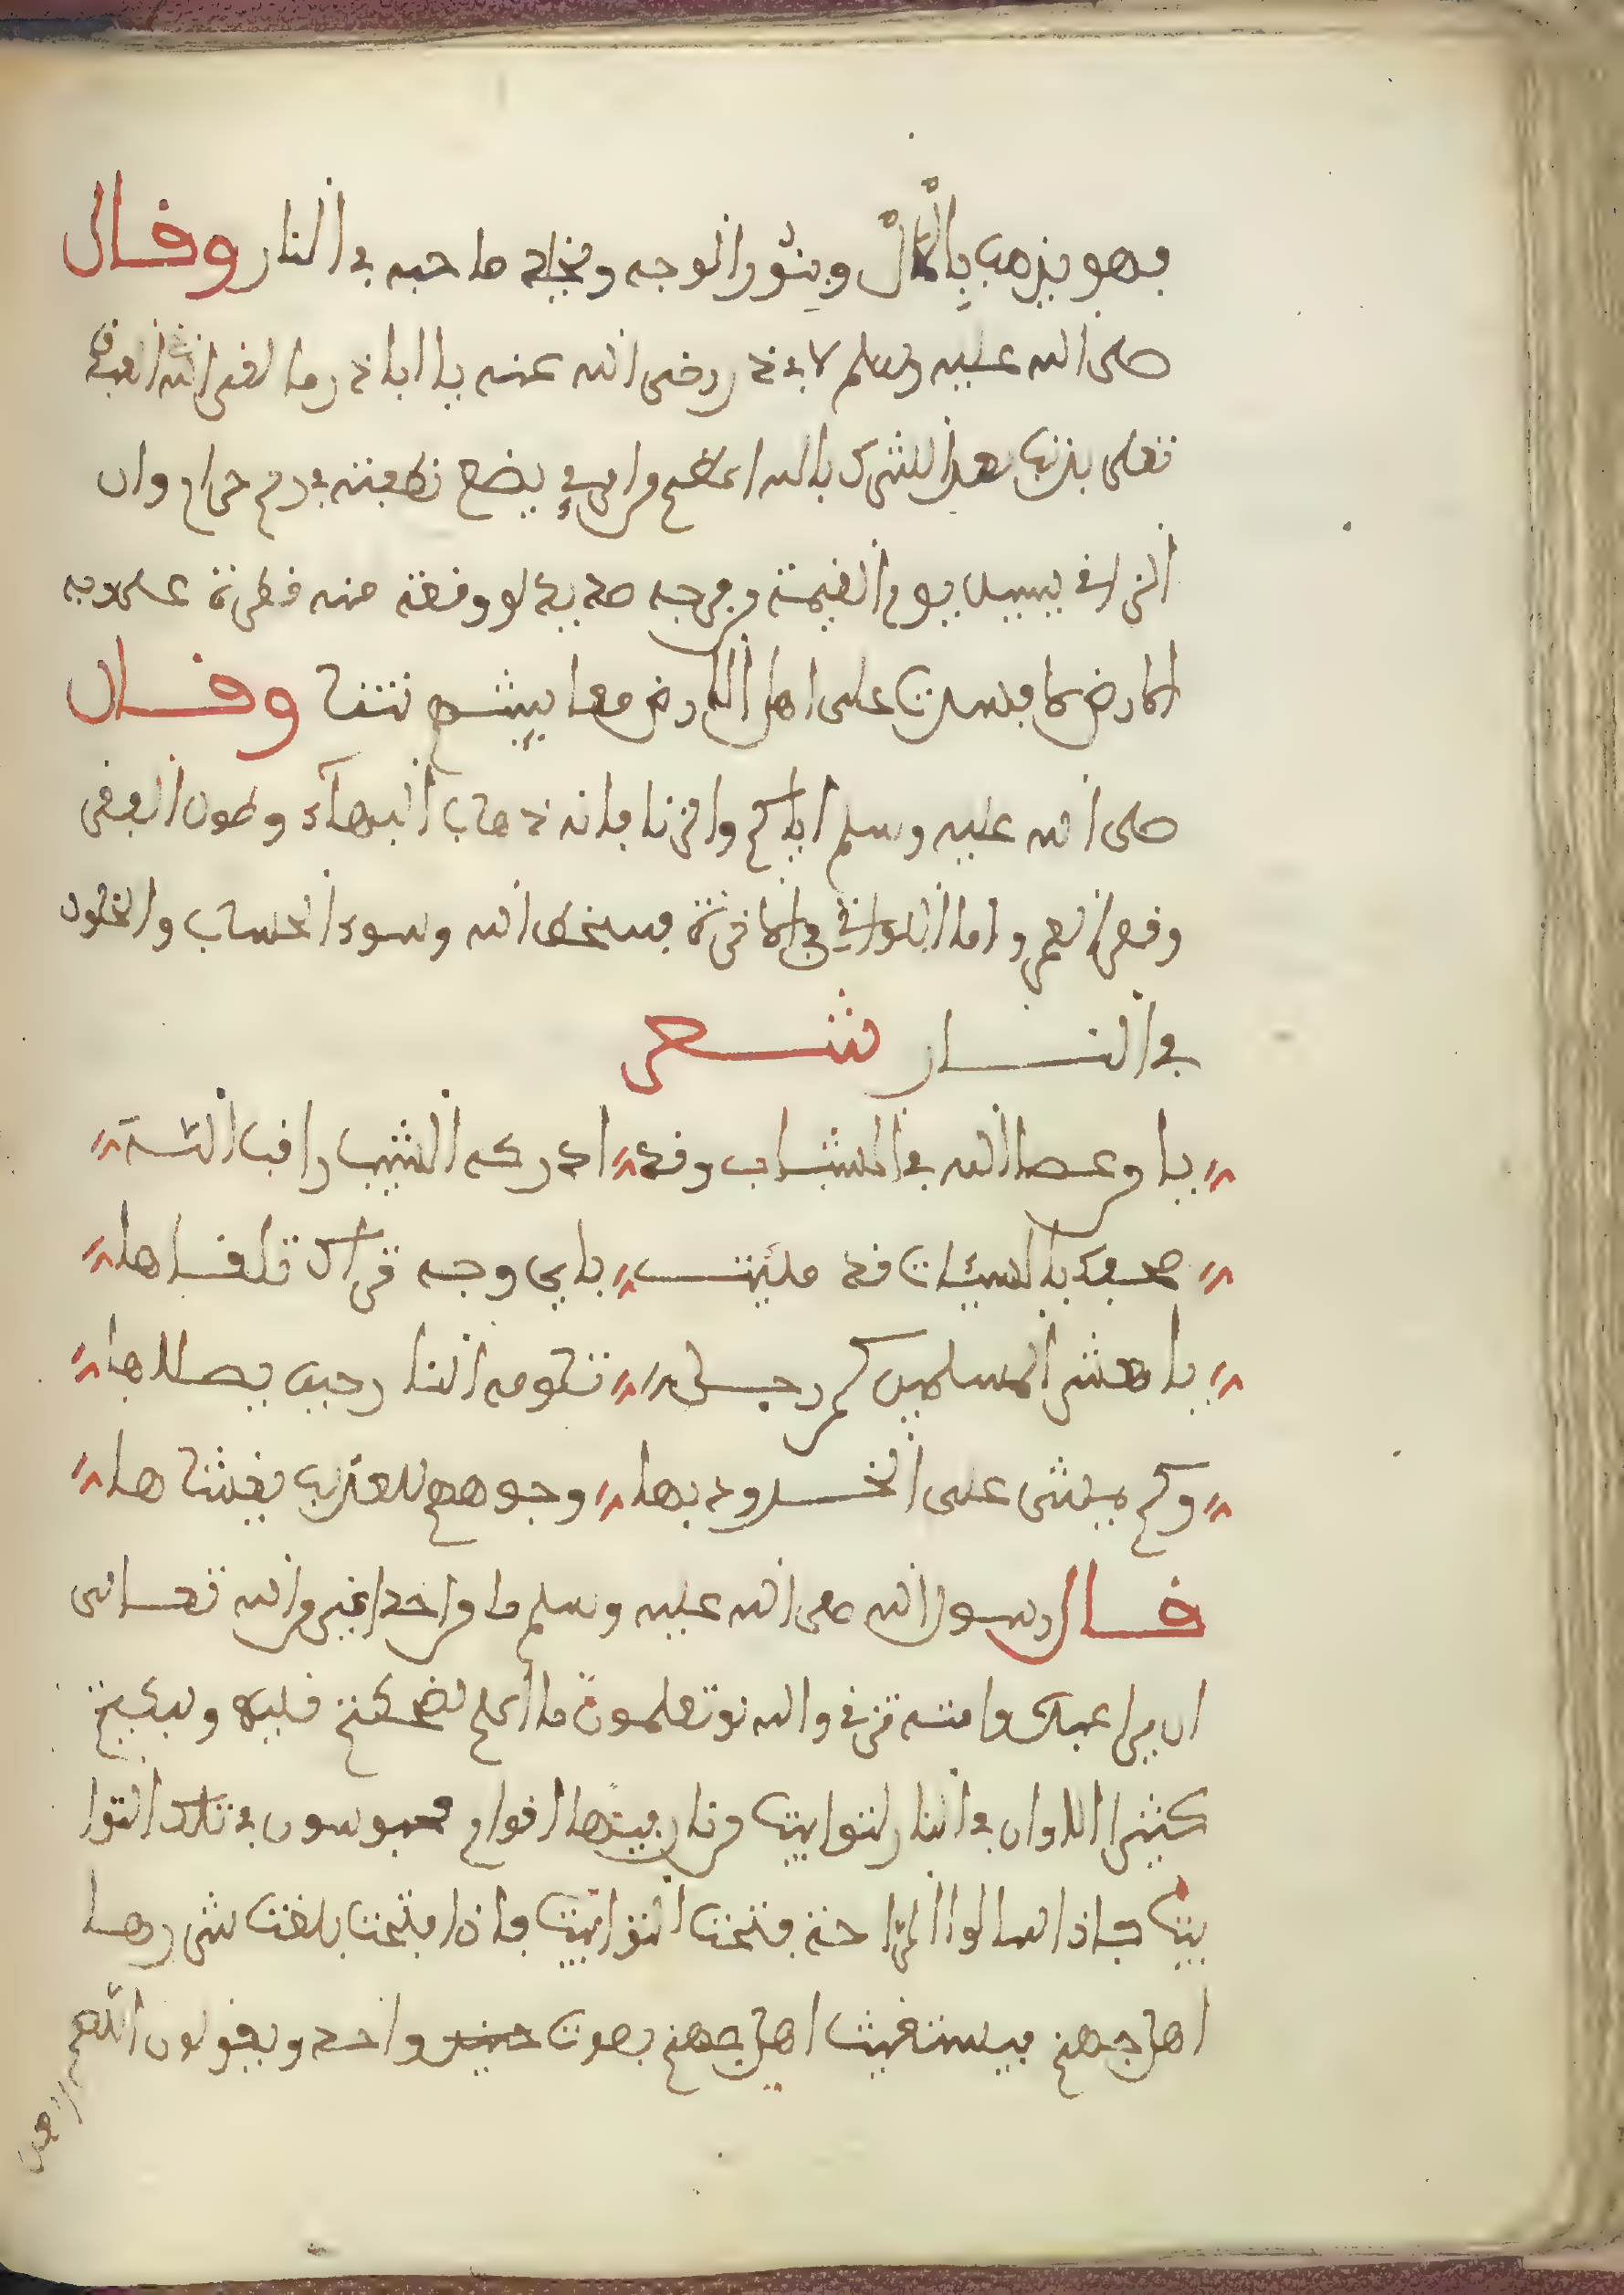 فهو يذهب بالمال وينور الوجه ويخلد صاحبه في النار وقال
صلى الله عليه وسلم لابي ذر رضى الله عنه يا ابا ذر ما لقى الله العبد
تعلى بذنب بعد الشرك بالله اعظم من امرئ يضع نطفته في رحم حرام وان
الزانى يسيل يوم القيمة من فرجه صديد لو وقعة منه قطرة على وجه
الارض لافسدت على اهل الارض معايشهم نتنا وقال
صلى الله عليه وسلم اياكم والزنا فانه ذهاب البهاء وطول الفقر
وقصر العمر واما اللواتى في الاخرة فسخط الله وسوء الحساب والخلود
في النار شعر
يا من عصا الله في الشباب وقد ادركه الشيب راقب الله
صحفك بالسيئات قد مليت باي وجه تراك تلقاها
يا معشر المسلمين كم رجل تلومه النار حين يصلاها
وكم يمشى على الخدود بها وجوههم للعذاب يغشاها
قال رسول الله صلى الله عليه وسلم ما من احد اغير من الله تعالى
ان يرا عبده وامته تزنى والله لو تعلمون ما اعلم لضحكتم قليلا ولبكيتم
كثيرا الا وان في النار لتوابيت من نار فيها اقوام محبوسون في تلك التوا
بيت فاذا سالوا الراحة فتحت التوابيت فاذا فتحت بلغت شررها
اهل جهنم فيستغيث اهل جهنم بصوت واحد ويقولون اللهم